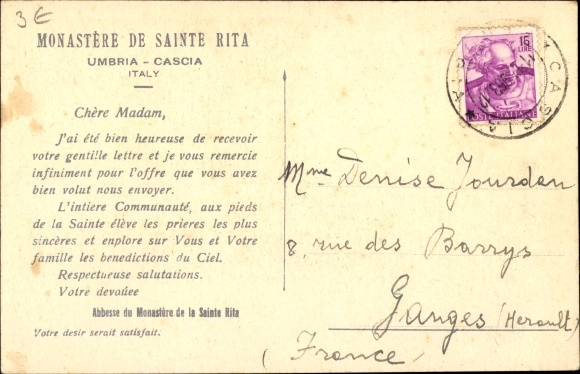 3 €
MONASTÈRE DE SAINTE RITA
UMBRIA - CASCIA
ITALY
Chère Madam,
J'ai été bien heureuse de recevoir
votre gentille lettre et je vous remercie
infiniment pour l'offre que vous avez
bien volut nous envoyer.
L'intiere Communauté, aux pieds
de la Sainte élève les prieres les plus
sincères et enplore sur Vous et Votre
famille les benedictions du Ciel.
Respectueuse salutations.
Votre devouée
Abbesse du Monastère de la Sainte Rita
Votre desir serait satisfait.
15
LIRE
POSTE ITALIANE
CASCIA
Mme Denise Jourdan
8, rue des Barrys
Ganges (Herault)
(France)